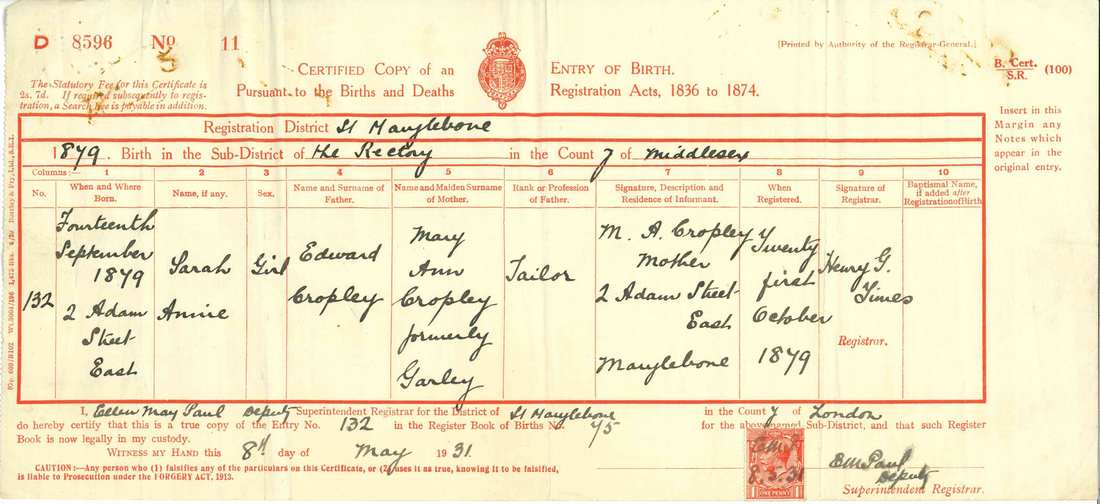 D 8596 No 11
[Printed by Authority of the Registrar-General.]
CERTIFIED COPY OF AN ENTRY OF BIRTH.
B. Cert. (100)
S.R.
The Statutory Fee for this Certificate is
2s. 7d. If required subsequently to regis-
tration, a Search Fee is payable in addition.
PURSUANT TO THE BIRTHS AND DEATHS REGISTRATION ACTS, 1836 TO 1874.
Insert in this
Margin any
Notes which
appear in the
original entry.
Registration District St Marylebone
1879. Birth in the Sub-District of the Rectory in the County of Middlesex
Columns:— 1 2 3 4 5 6 7 8 9 10
No.
When and Where
Born.
Name, if any.
Sex.
Name and Surname of
Father.
Name and Maiden Surname
of Mother.
Rank or Profession
of Father.
Signature, Description and
Residence of Informant.
When
Registered.
Signature of
Registrar.
Baptismal Name,
if added after
Registration of Birth
132
Fourteenth
September
1879
2 Adam
Street
East
Sarah
Annie
Girl
Edward
Cropley
Mary
Ann
Cropley
formerly
Garley
Tailor
M. A. Cropley
Mother
2 Adam Street
East
Marylebone
Twenty
first
October
1879
Henry G.
Times
Registrar.
I, Ellen May Paul Deputy Superintendent Registrar for the District of St Marylebone in the County of London
do hereby certify that this is a true copy of the Entry No. 132 in the Register Book of Births No. 45 for the above-named Sub-District, and that such Register
Book is now legally in my custody.
WITNESS MY HAND this 8th day of May 1931.
CAUTION:—Any person who (1) falsifies any of the particulars on this Certificate, or (2) uses it as true, knowing it to be falsified,
is liable to Prosecution under the FORGERY ACT, 1913.
8.5.31
ONE PENNY
EM Paul
Deputy
Superintendent Registrar.